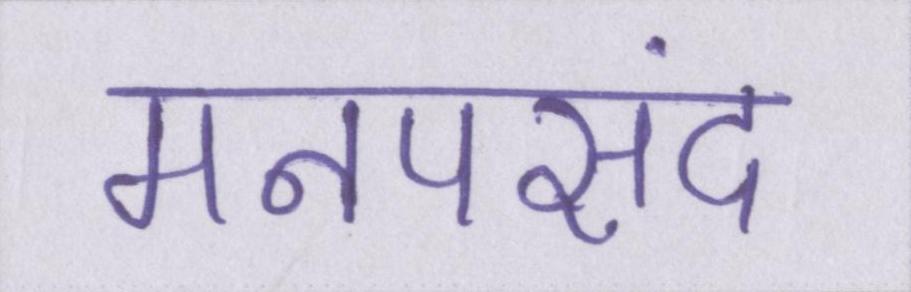 मनपसंद